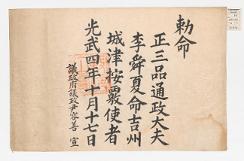 勅命
正三品通政大夫
李舜夏命吉州
城津按覈使者
光武四年十月十七日
議政府議政尹容善 宣